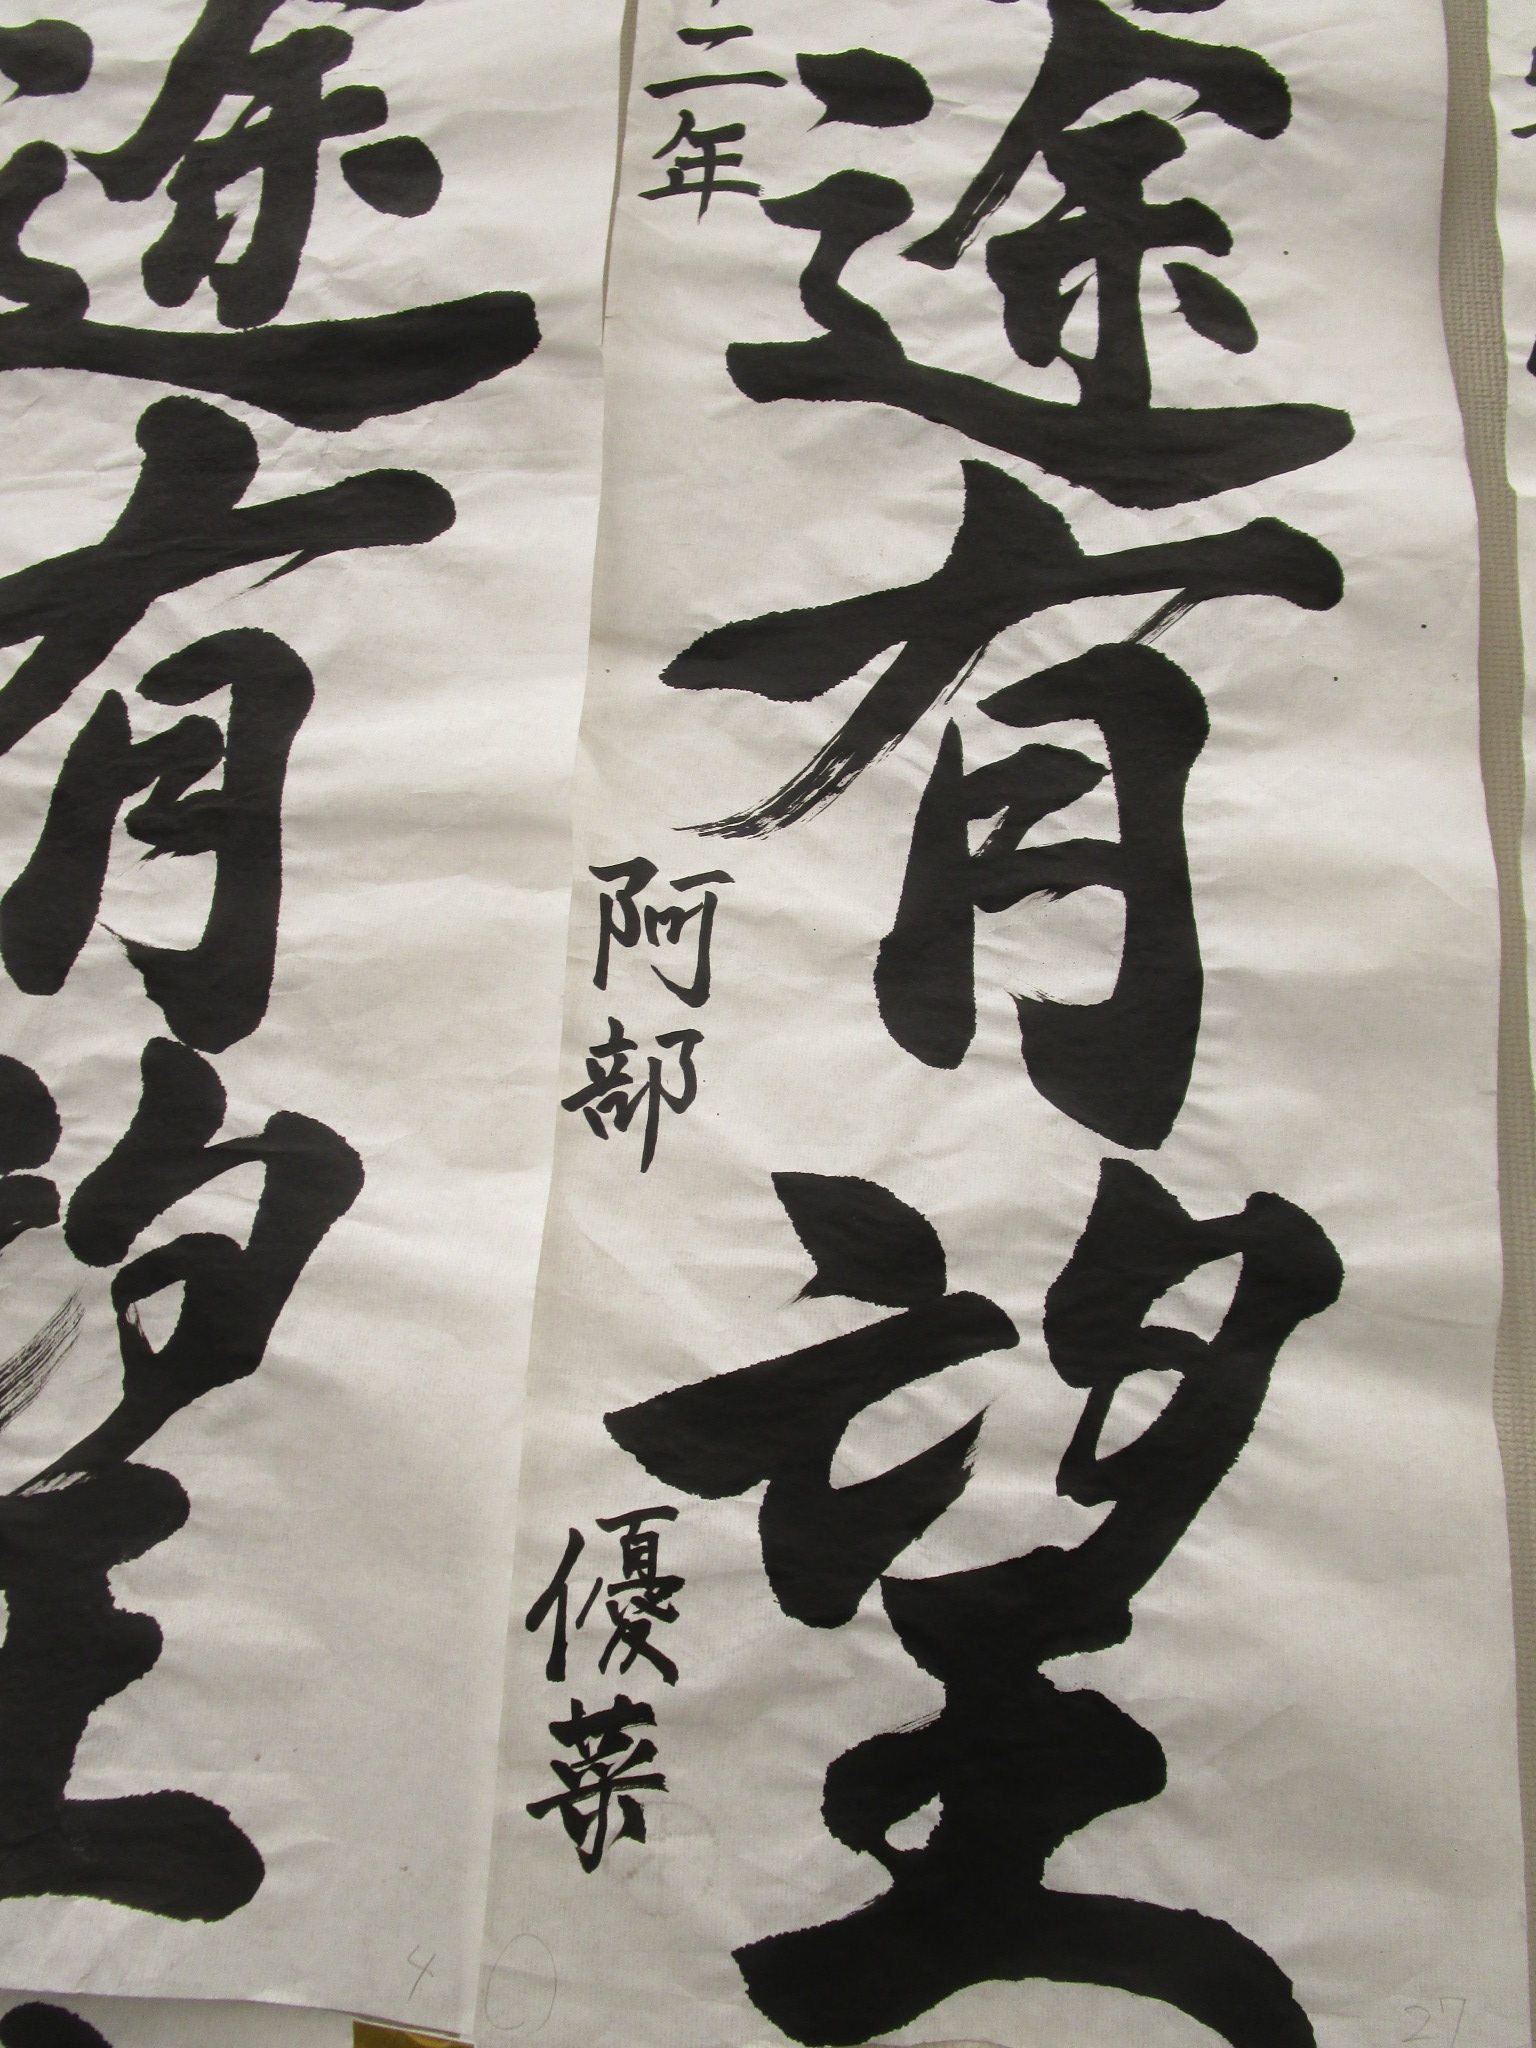 途有望
二年 阿部 優菜
途有望
4
27